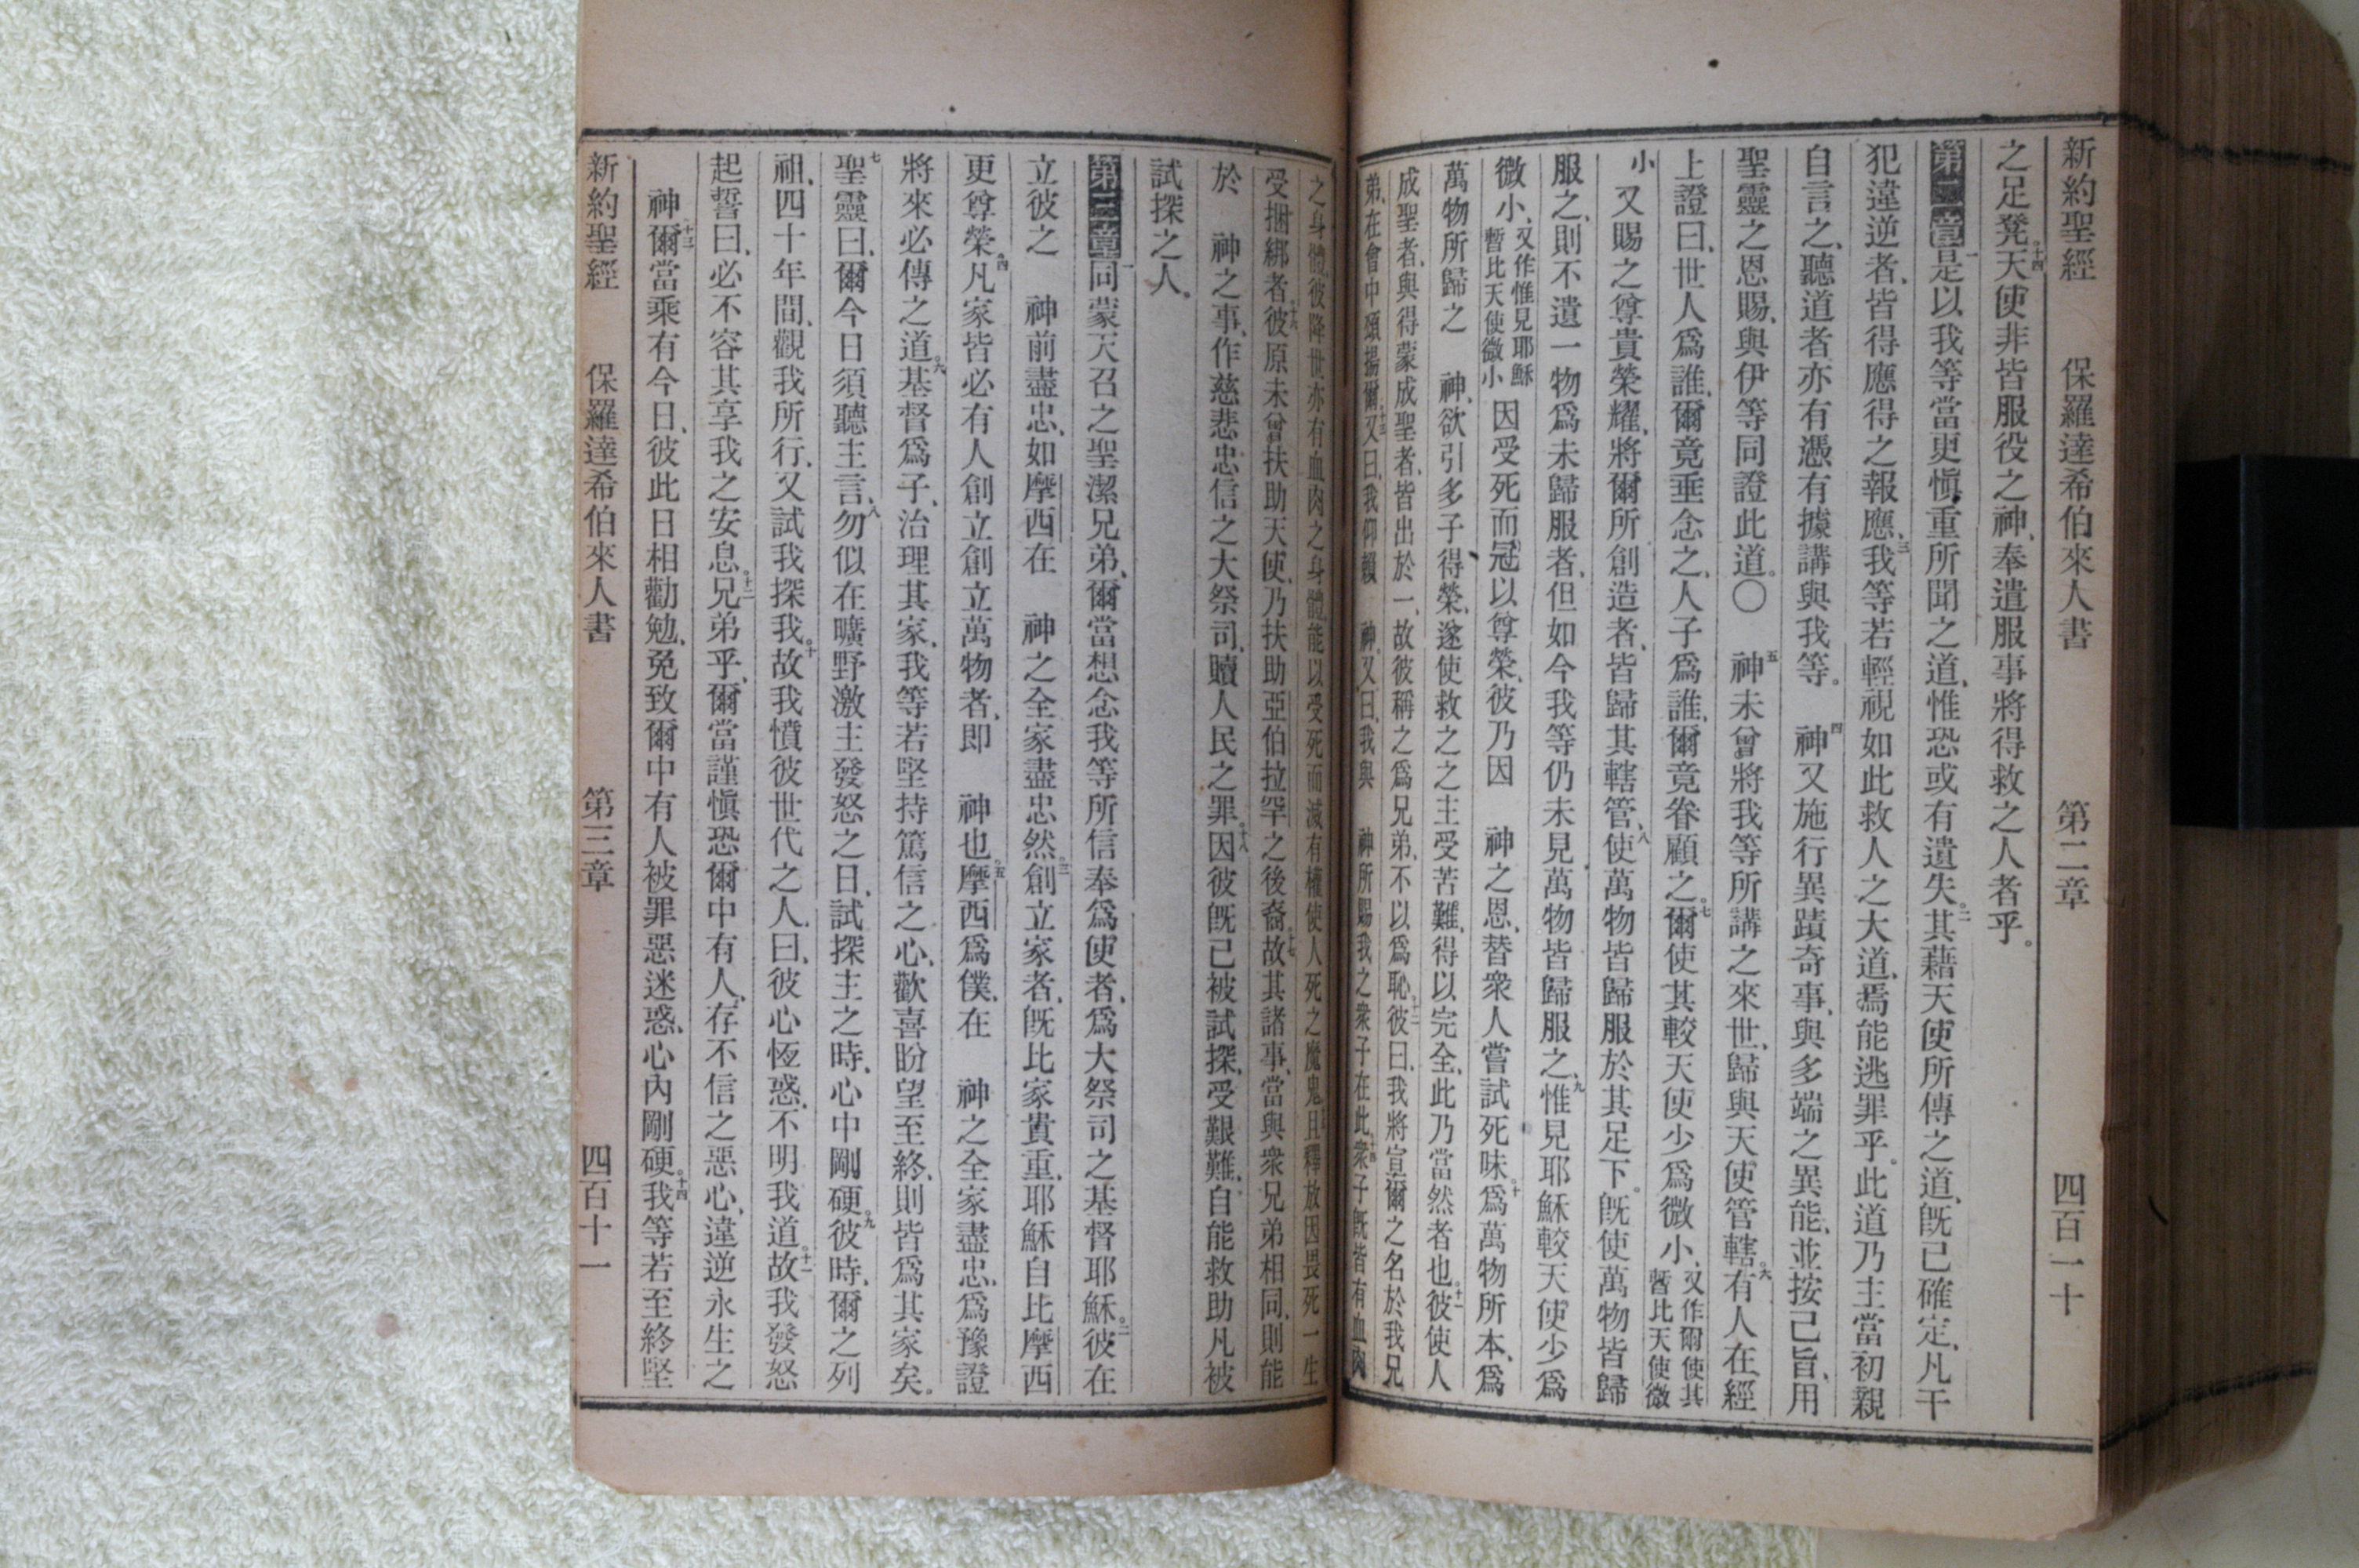 新約聖經 保羅達希伯來人書 第二章 四百一十
之足凳。十四天使非皆服役之神、奉遣服事將得救之人者乎。
第二章一是以我等當更愼重所聞之道、惟恐或有遺失。二其藉天使所傳之道、旣已確定、凡干
犯違逆者、皆得應得之報應、三我等若輕視如此救人之大道、焉能逃罪乎。此道乃主當初親
自言之、聽道者亦有憑有據講與我等。四 神又施行異蹟奇事、與多端之異能、並按己旨、用
聖靈之恩賜、與伊等同證此道。〇五 神未曾將我等所講之來世、歸與天使管轄。六有人在經
上證曰、世人爲誰、爾竟垂念之、人子爲誰、爾竟眷顧之。七爾使其較天使少爲微小、又作爾使其暫比天使微
小 又賜之尊貴榮耀、將爾所創造者、皆歸其轄管、八使萬物皆歸服於其足下。旣使萬物皆歸
服之、則不遺一物爲未歸服者、但如今我等仍未見萬物皆歸服之、九惟見耶穌較天使少爲
微小、又作惟見耶穌暫比天使微小因受死而冠以尊榮、彼乃因 神之恩、替衆人嘗試死味。十爲萬物所本、爲
萬物所歸之 神、欲引多子得榮、遂使救之之主受苦難、得以完全、此乃當然者也。十一彼使人
成聖者、與得蒙成聖者、皆出於一、故彼稱之爲兄弟、不以爲恥、十二彼曰、我將宣爾之名於我兄
弟、在會中頌揚爾。十三又曰、我仰賴 神、又曰、我與 神所賜我之衆子在此、十四衆子旣皆有血肉
之身體、彼降世亦有血肉之身體、能以受死而滅有權使人死之魔鬼、且釋放因畏死一生
受捆綁者。十六彼原未曾扶助天使、乃扶助亞伯拉罕之後裔。十七故其諸事、當與衆兄弟相同、則能
於 神之事、作慈悲忠信之大祭司、贖人民之罪。十八因彼旣已被試探、受艱難、自能救助凡被
試探之人。
第三章一同蒙天召之聖潔兄弟、爾當想念我等所信奉爲使者、爲大祭司之基督耶穌。二彼在
立彼之 神前盡忠、如摩西在 神之全家盡忠然。三創立家者、旣比家貴重、耶穌自比摩西
更尊榮。四凡家皆必有人創立、創立萬物者、卽 神也。五摩西爲僕、在 神之全家盡忠、爲豫證
將來必傳之道。六基督爲子、治理其家、我等若堅持篤信之心、歡喜盼望至終、則皆爲其家矣。
七聖靈曰、爾今日須聽主言、八勿似在曠野激主發怒之日、試探主之時、心中剛硬。九彼時、爾之列
祖、四十年間、觀我所行、又試我探我。十故我憤彼世代之人、曰、彼心恆惑、不明我道。十一故我發怒
起誓曰、必不容其享我之安息。十二兄弟乎、爾當謹愼、恐爾中有人、存不信之惡心、違逆永生之
神。十三爾當乘有今日、彼此日相勸勉、免致爾中有人被罪惡迷惑、心內剛硬。十四我等若至終堅
新約聖經 保羅達希伯來人書 第三章 四百十一